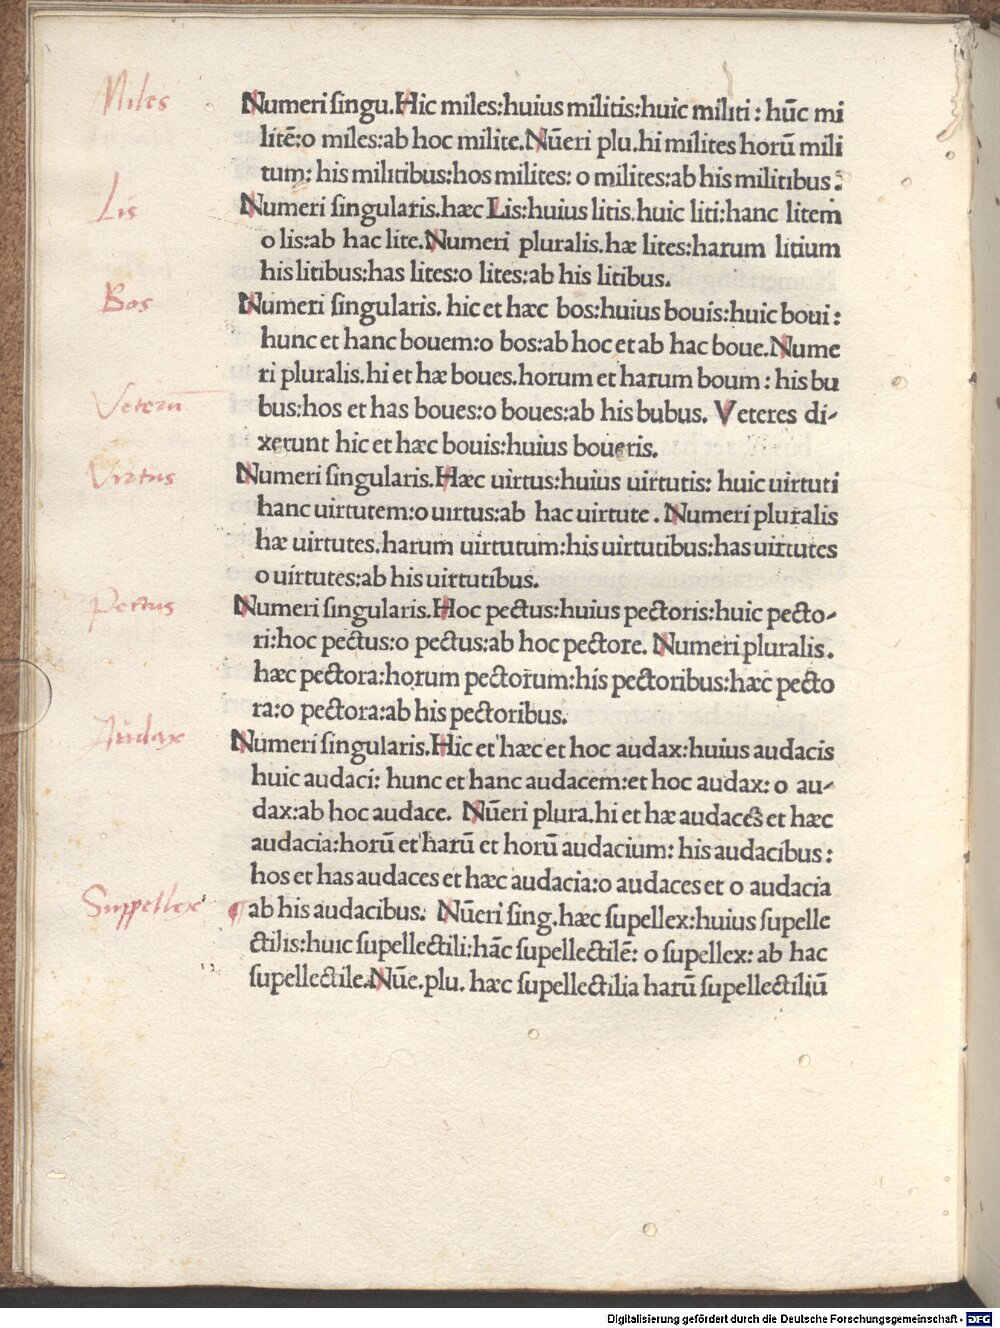 Miles
Numeri ſingu.Hic miles:huius militis:huic militi: hūc mi
litē:o miles:ab hoc milite.Nūeri plu.hi milites horū mili
tum: his militibus:hos milites: o milites:ab his militibus:
Lis
Numeri ſingularis.hæc Lis:huius litis.huic liti:hanc litem
o lis:ab hac lite.Numeri pluralis.hæ lites:harum litium
his litibus:has lites:o lites:ab his litibus.
Bos
Numeri ſingularis. hic et hæc bos:huius bouis:huic boui:
hunc et hanc bouem:o bos:ab hoc et ab hac boue.Nume
ri pluralis.hi et hæ boues.horum et harum boum: his bu
Veterū
bus:hos et has boues:o boues:ab his bubus. Veteres di-
xerunt hic et hæc bouis:huius boueris.
Virtus
Numeri ſingularis.Hæc uirtus:huius uirtutis: huic uirtuti
hanc uirtutem:o uirtus:ab hac uirtute. Numeri pluralis
hæ uirtutes.harum uirtutum:his uirtutibus:has uirtutes
o uirtutes:ab his uirtutibus.
Pectus
Numeri ſingularis.Hoc pectus:huius pectoris:huic pecto-
ri:hoc pectus:o pectus:ab hoc pectore. Numeri pluralis.
hæc pectora:horum pectorum:his pectoribus:hæc pecto
ra:o pectora:ab his pectoribus.
Audax
Numeri ſingularis.Hic et hæc et hoc audax:huius audacis
huic audaci: hunc et hanc audacem:et hoc audax: o au-
dax:ab hoc audace. Nūeri plura.hi et hæ audaces et hæc
audacia:horū et harū et horū audacium: his audacibus:
hos et has audaces et hæc audacia:o audaces et o audacia
Suppellex
¶ ab his audacibus. Nūeri ſing.hæc ſupellex:huius ſupelle
ctilis:huic ſupellectili:hāc ſupellectilē: o ſupellex: ab hac
ſupellectile.Nūe.plu. hæc ſupellectilia harū ſupellectiliū
Digitalisierung gefördert durch die Deutsche Forschungsgemeinschaft - DFG